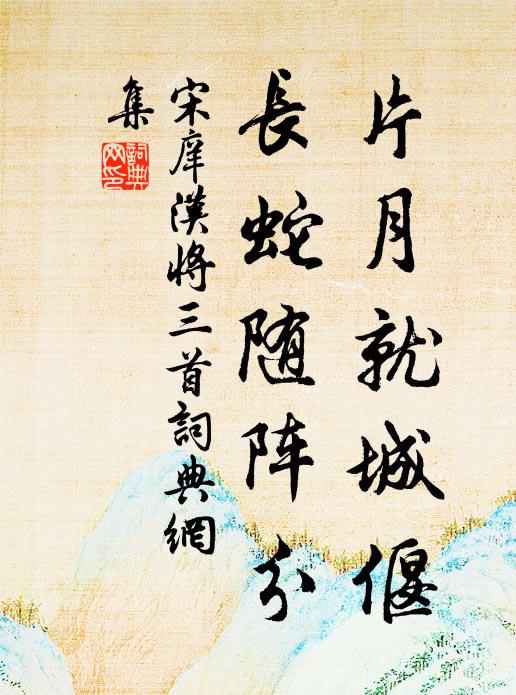 片月就城偃
長蛇随阵分
宋庠漢將三首詞典網
集
詞典
网印